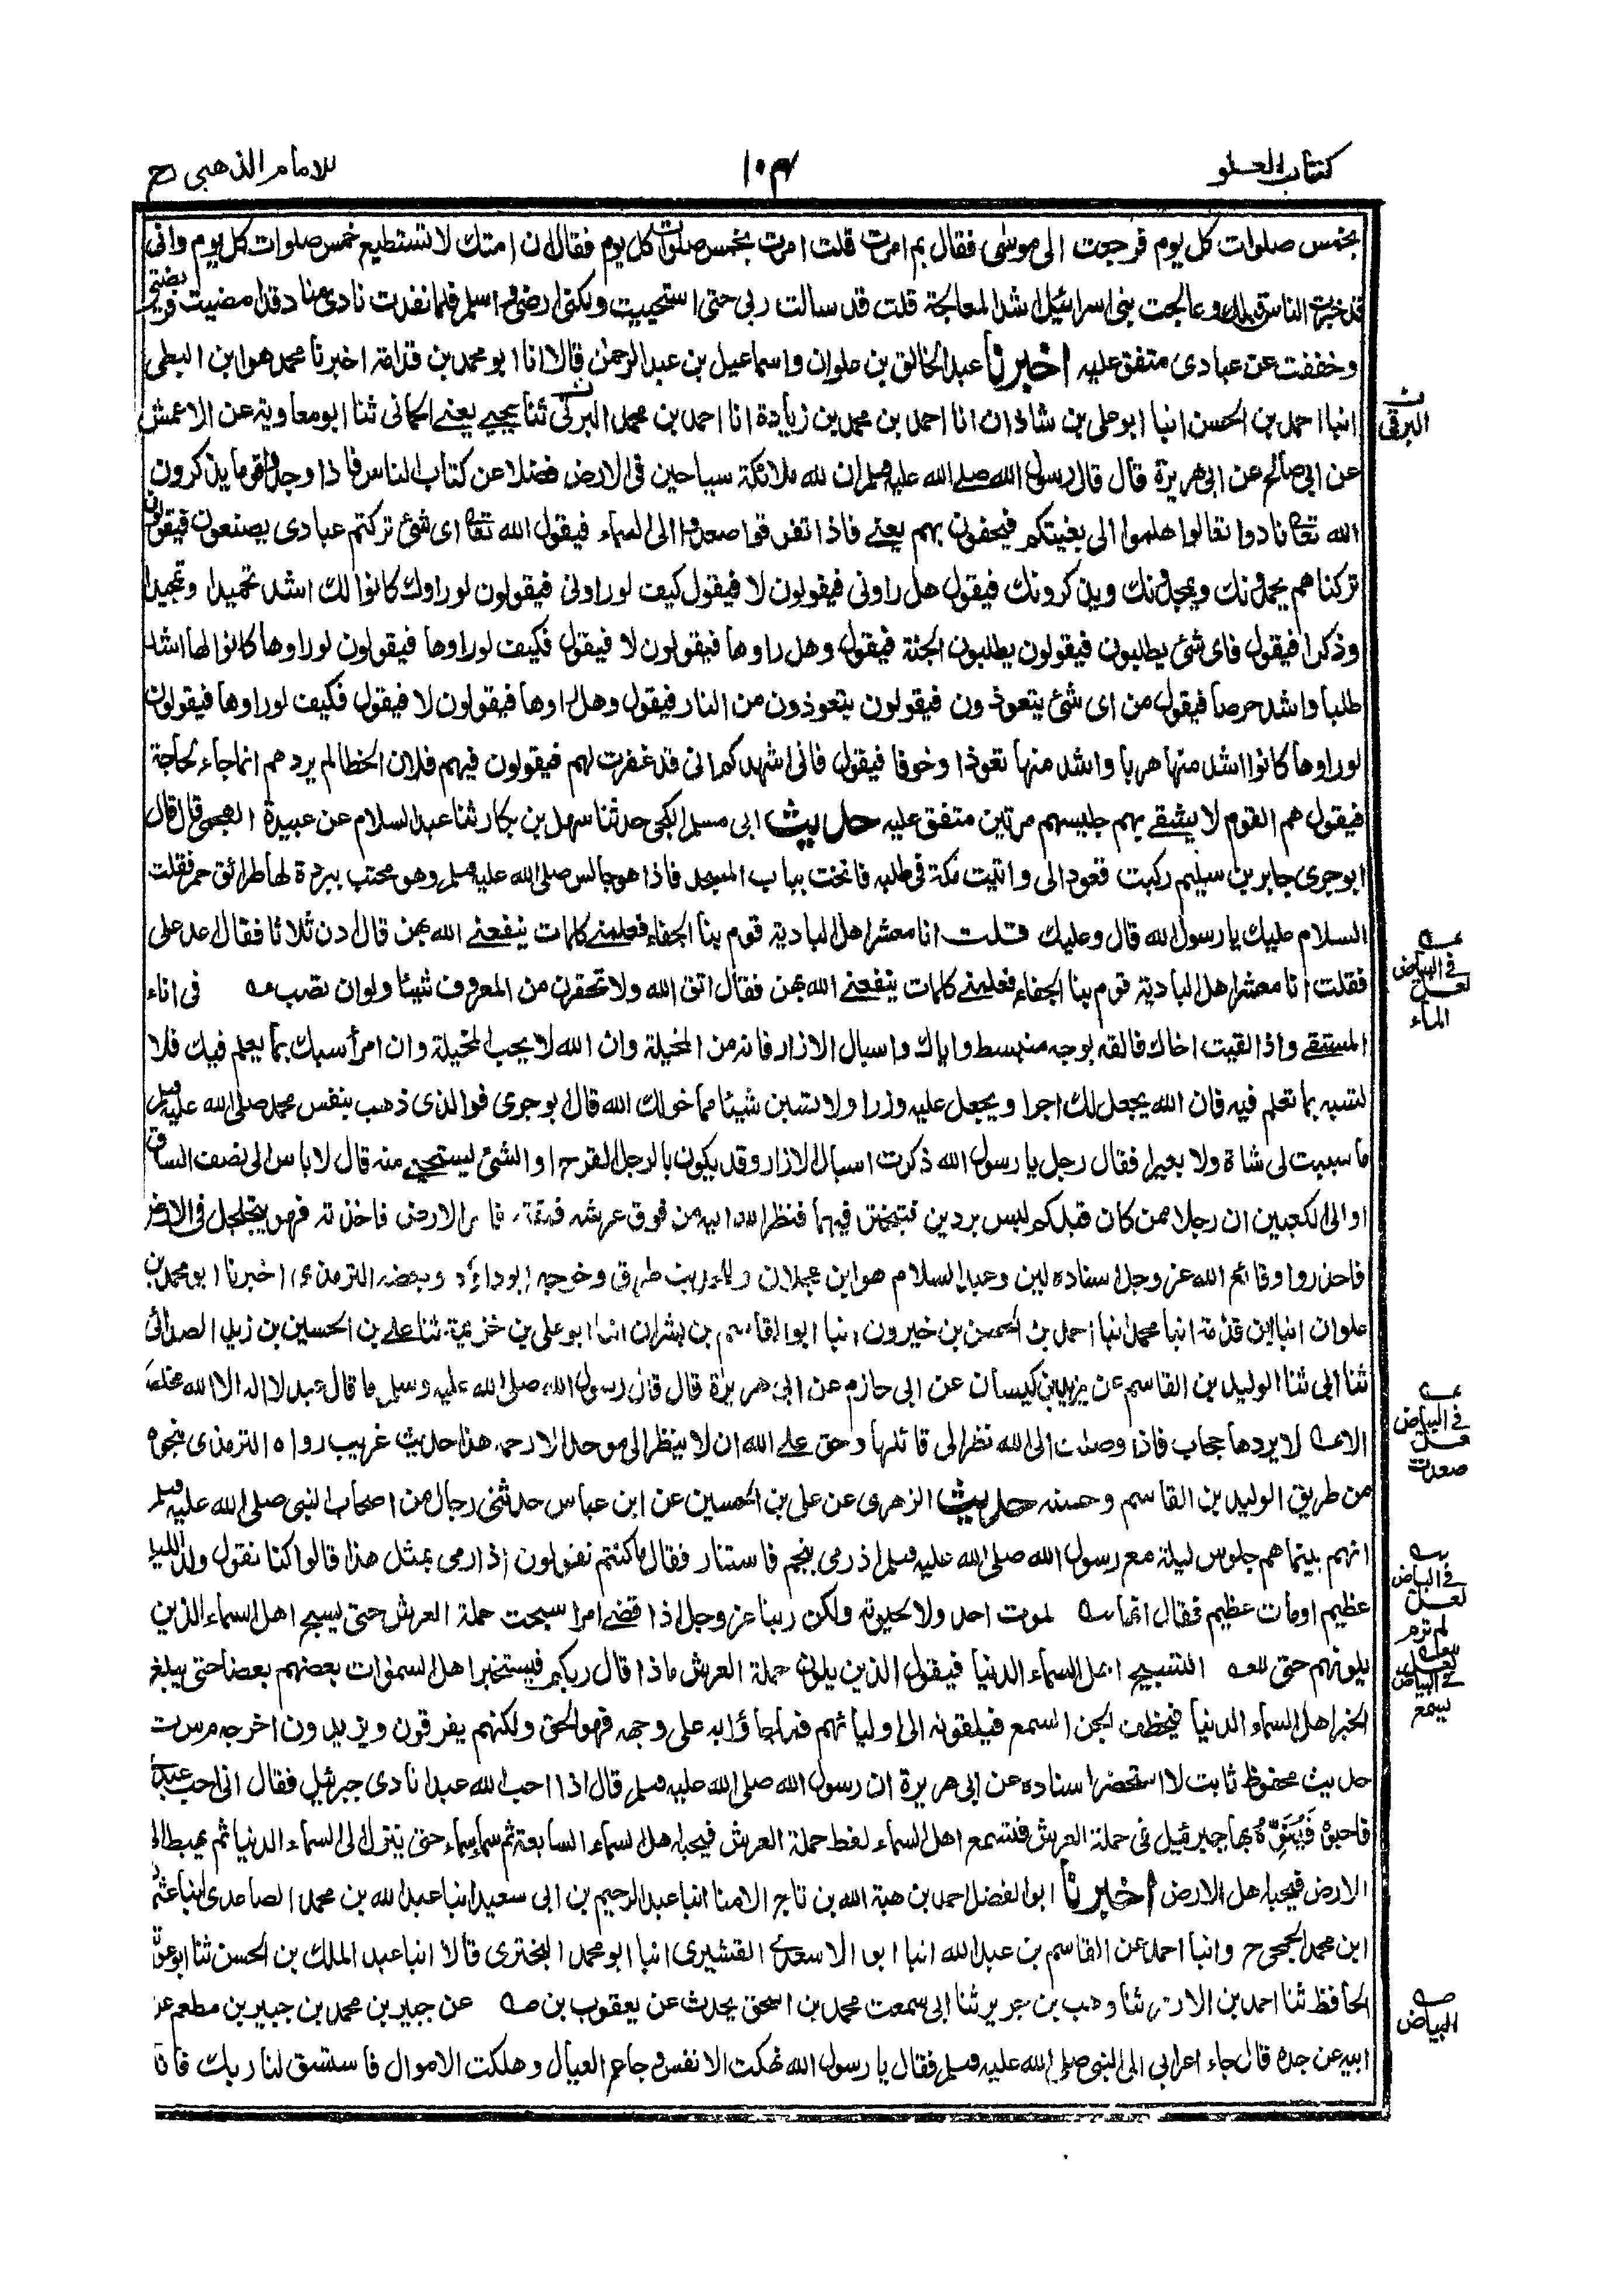 كتاب العلو
١٠٣
للامام الذهبي رح
بخمس صلوات كل يوم فرجعت الى موسى فقال بم امرت قلت امرت بخمس صلوات كل يوم فقال ان امتك لا تستطيع خمس صلوات كل يوم وانى
قد خبرت الناس قبلك وعالجت بنى اسرائيل اشد المعالجة قلت قد سالت ربى حتى استحييت ولكنى ارضى و اسلم فلما نفذت نادى مناد قد امضيت فريضتى
وخففت عن عبادى متفق عليه اخبرنا عبد الخالق بن علوان واسماعيل بن عبد الرحمن قالا انا ابو محمد بن قدامة اخبرنا محمد هو ابن البطى
انبا احمد بن الحسن انبا ابو على بن شاذان انا احمد بن محمد بن زيادة انا احمد بن محمد البرتى ثنا يحيى يعنى الحمانى ثنا ابو معاوية عن الاعمش
البرقى
عن ابى صالح عن ابى هريرة قال قال رسول الله صلى الله عليه وسلم ان لله ملائكة سياحين فى الارض فضلا عن كتاب الناس فاذا وجدوا قوما يذكرون
الله تعا نادوا تعالوا هلموا الى بغيتكم فيحفون بهم يعنى فاذا تفرقوا صعدوا الى السماء فيقول الله تعا اى شئ تركتم عبادى يصنعون فيقولون
تركناهم يحمدونك ويمجدونك ويذكرونك فيقول هل راونى فيقولون لا فيقول كيف لو راونى فيقولون لو راوك كانوا لك اشد تحميدا وتمجيدا
وذكرا فيقول فاى شئ يطلبون فيقولون يطلبون الجنة فيقول وهل راوها فيقولون لا فيقول فكيف لو راوها فيقولون لو راوها كانوا لها اشد
طلبا واشد حرصا فيقول من اى شئ يتعوذون فيقولون يتعوذون من النار فيقول وهل راوها فيقولون لا فيقول فكيف لو راوها فيقولون
لو راوها كانوا اشد منها هربا واشد منها تعوذا وخوفا فيقول فانى اشهدكم انى قد غفرت لهم فيقولون فيهم فلان الخطا لم يردهم انما جاء لحاجة
فيقول هم القوم لا يشقى بهم جليسهم مرتين متفق عليه حديث ابى مسلم الكجى حدثنا سهل بن بكار ثنا عبد السلام عن عبيدة الهجيمى قال قال
ابو جرى جابر بن سليم ركبت قعودا لى واتيت مكة فى طلبه فانخت بباب المسجد فاذا هو جالس صلى الله عليه وسلم وهو محتب ببردة لها طرائق حمر فقلت
السلام عليك يا رسول الله قال وعليك قلت انا معشر اهل البادية قوم بنا الجفاء فعلمنى كلمات ينفعنى الله بهن قال ادن ثلاثا فقال اعد على
فقلت انا معشر اهل البادية قوم بنا الجفاء فعلمنى كلمات ينفعنى الله بهن فقال اتق الله ولا تحقرن من المعروف شيئا ولو ان تصب عه فى اناء
عه فى البياض لعله الماء
المستقى واذا لقيت اخاك فالقه بوجه منبسط واياك واسبال الازار فانه من المخيلة وان الله لا يحب المخيلة وان امرأ سبك بما يعلم فيك فلا
تسبه بما تعلم فيه فان الله يجعل لك اجرا ويجعل عليه وزرا ولا تسبن شيئا مما خولك الله قال ابو جرى فوالذى ذهب بنفس محمد صلى الله عليه وسلم
ما سببت لى شاة ولا بعيرا فقال رجل يا رسول الله ذكرت اسبال الازار وقد يكون بالرجل القرح او الشئ ليستحيى منه قال لا باس الى نصف الساق
او الى الكعبين ان رجلا ممن كان قبلكم لبس بردين فتبختر فيهما فنظر الله اليه من فوق عرشه فمقته الارض فاخذته فهو يتجلجل فى الارض
فاحذروا وقائع الله عز وجل اسناده لين وعبد السلام هو ابن عجلان وللحديث طرق وخرجه ابوداؤد وبعضه الترمذى اخبرنا ابو محمد بن
علوان انبا ابن قدامة انبا محمد انبا احمد بن الحسن بن خيرون انبا ابو القاسم بن بشران انبا ابو على بن خزيمة ثنا على بن الحسين بن زيد الصدائى
ثنا ابى ثنا الوليد بن القاسم عن يزيد بن كيسان عن ابى حازم عن ابى هريرة قال قال رسول الله صلى الله عليه وسلم ما قال عبد لا اله الا الله مخلصا
الا عه لا يردها حجاب فاذا وصلت الى الله نظر الى قائلها وحق على الله ان لا ينظر الى موحد الا رحمه هذا حديث غريب رواه الترمذى بنحوه
عه فى البياض لعله صعدت
من طريق الوليد بن القاسم وحسنه حديث الزهرى عن على بن الحسين عن ابن عباس حدثنى رجال من اصحاب النبى صلى الله عليه وسلم
انهم بينما هم جلوس ليلة مع رسول الله صلى الله عليه وسلم اذ رمى بنجم فاستنار فقال ما كنتم تقولون اذا رمى بمثل هذا قالوا كنا نقول ولد الليلة
عظيم او مات عظيم فقال انها سه لموت احد ولا لحيوته ولكن ربنا عز وجل اذا قضى امرا سبحت حملة العرش حتى يسبح اهل السماء الذين
سه فى البياض لعله لم ترم
يلونهم حتى للعه التسبيح اهل السماء الدنيا فيقول الذين يلون حملة العرش ماذا قال ربكم فيستخبر اهل السموات بعضهم بعضا حتى يبلغ
للعه لعله فى البياض يسمع
الخبر اهل السماء الدنيا فيخطف الجن السمع فيلقونه الى اوليائهم فما جاؤا به على وجهه فهو الحق ولكنهم يفرقون ويزيدون اخرجه م س ت
حديث محفوظ ثابت لا استحضر اسناده عن ابى هريرة ان رسول الله صلى الله عليه وسلم قال اذا احب الله عبدا نادى جبرئيل فقال انى احب عبدى
فاحبوه فَيُنَوِّهُ بها جبرئيل فى حملة العرش فتسمع اهل السماء لغط حملة العرش فيحبه اهل السماء السابعة ثم سماء سماء حتى ينزل الى السماء الدنيا ثم يهبط الى
الارض فيحبه اهل الارض اخبرنا ابو الفضل احمد بن هبة الله بن تاج الامنا انبا عبد الرحيم بن ابى سعيد انبا عبد الله بن محمد الصاعدى انبا عثمان
ابن محمد المحمى ح وانبا احمد عن القاسم بن عبد الله انبا ابو الاسعد القشيرى انبا ابو محمد البخترى قالا انبا عبد الملك بن الحسن ثنا ابو عوانة
الحافظ ثنا احمد بن الازهر ثنا وهب بن جرير ثنا ابى سمعت محمد بن اسحق يحدث عن يعقوب بن صه عن جبير بن محمد بن جبير بن مطعم عن
صه البياض
ابيه عن جده قال جاء اعرابى الى النبى صلى الله عليه وسلم فقال يا رسول الله نهكت الانفس و جاع العيال وهلكت الاموال فاستسق لنا ربك فانا